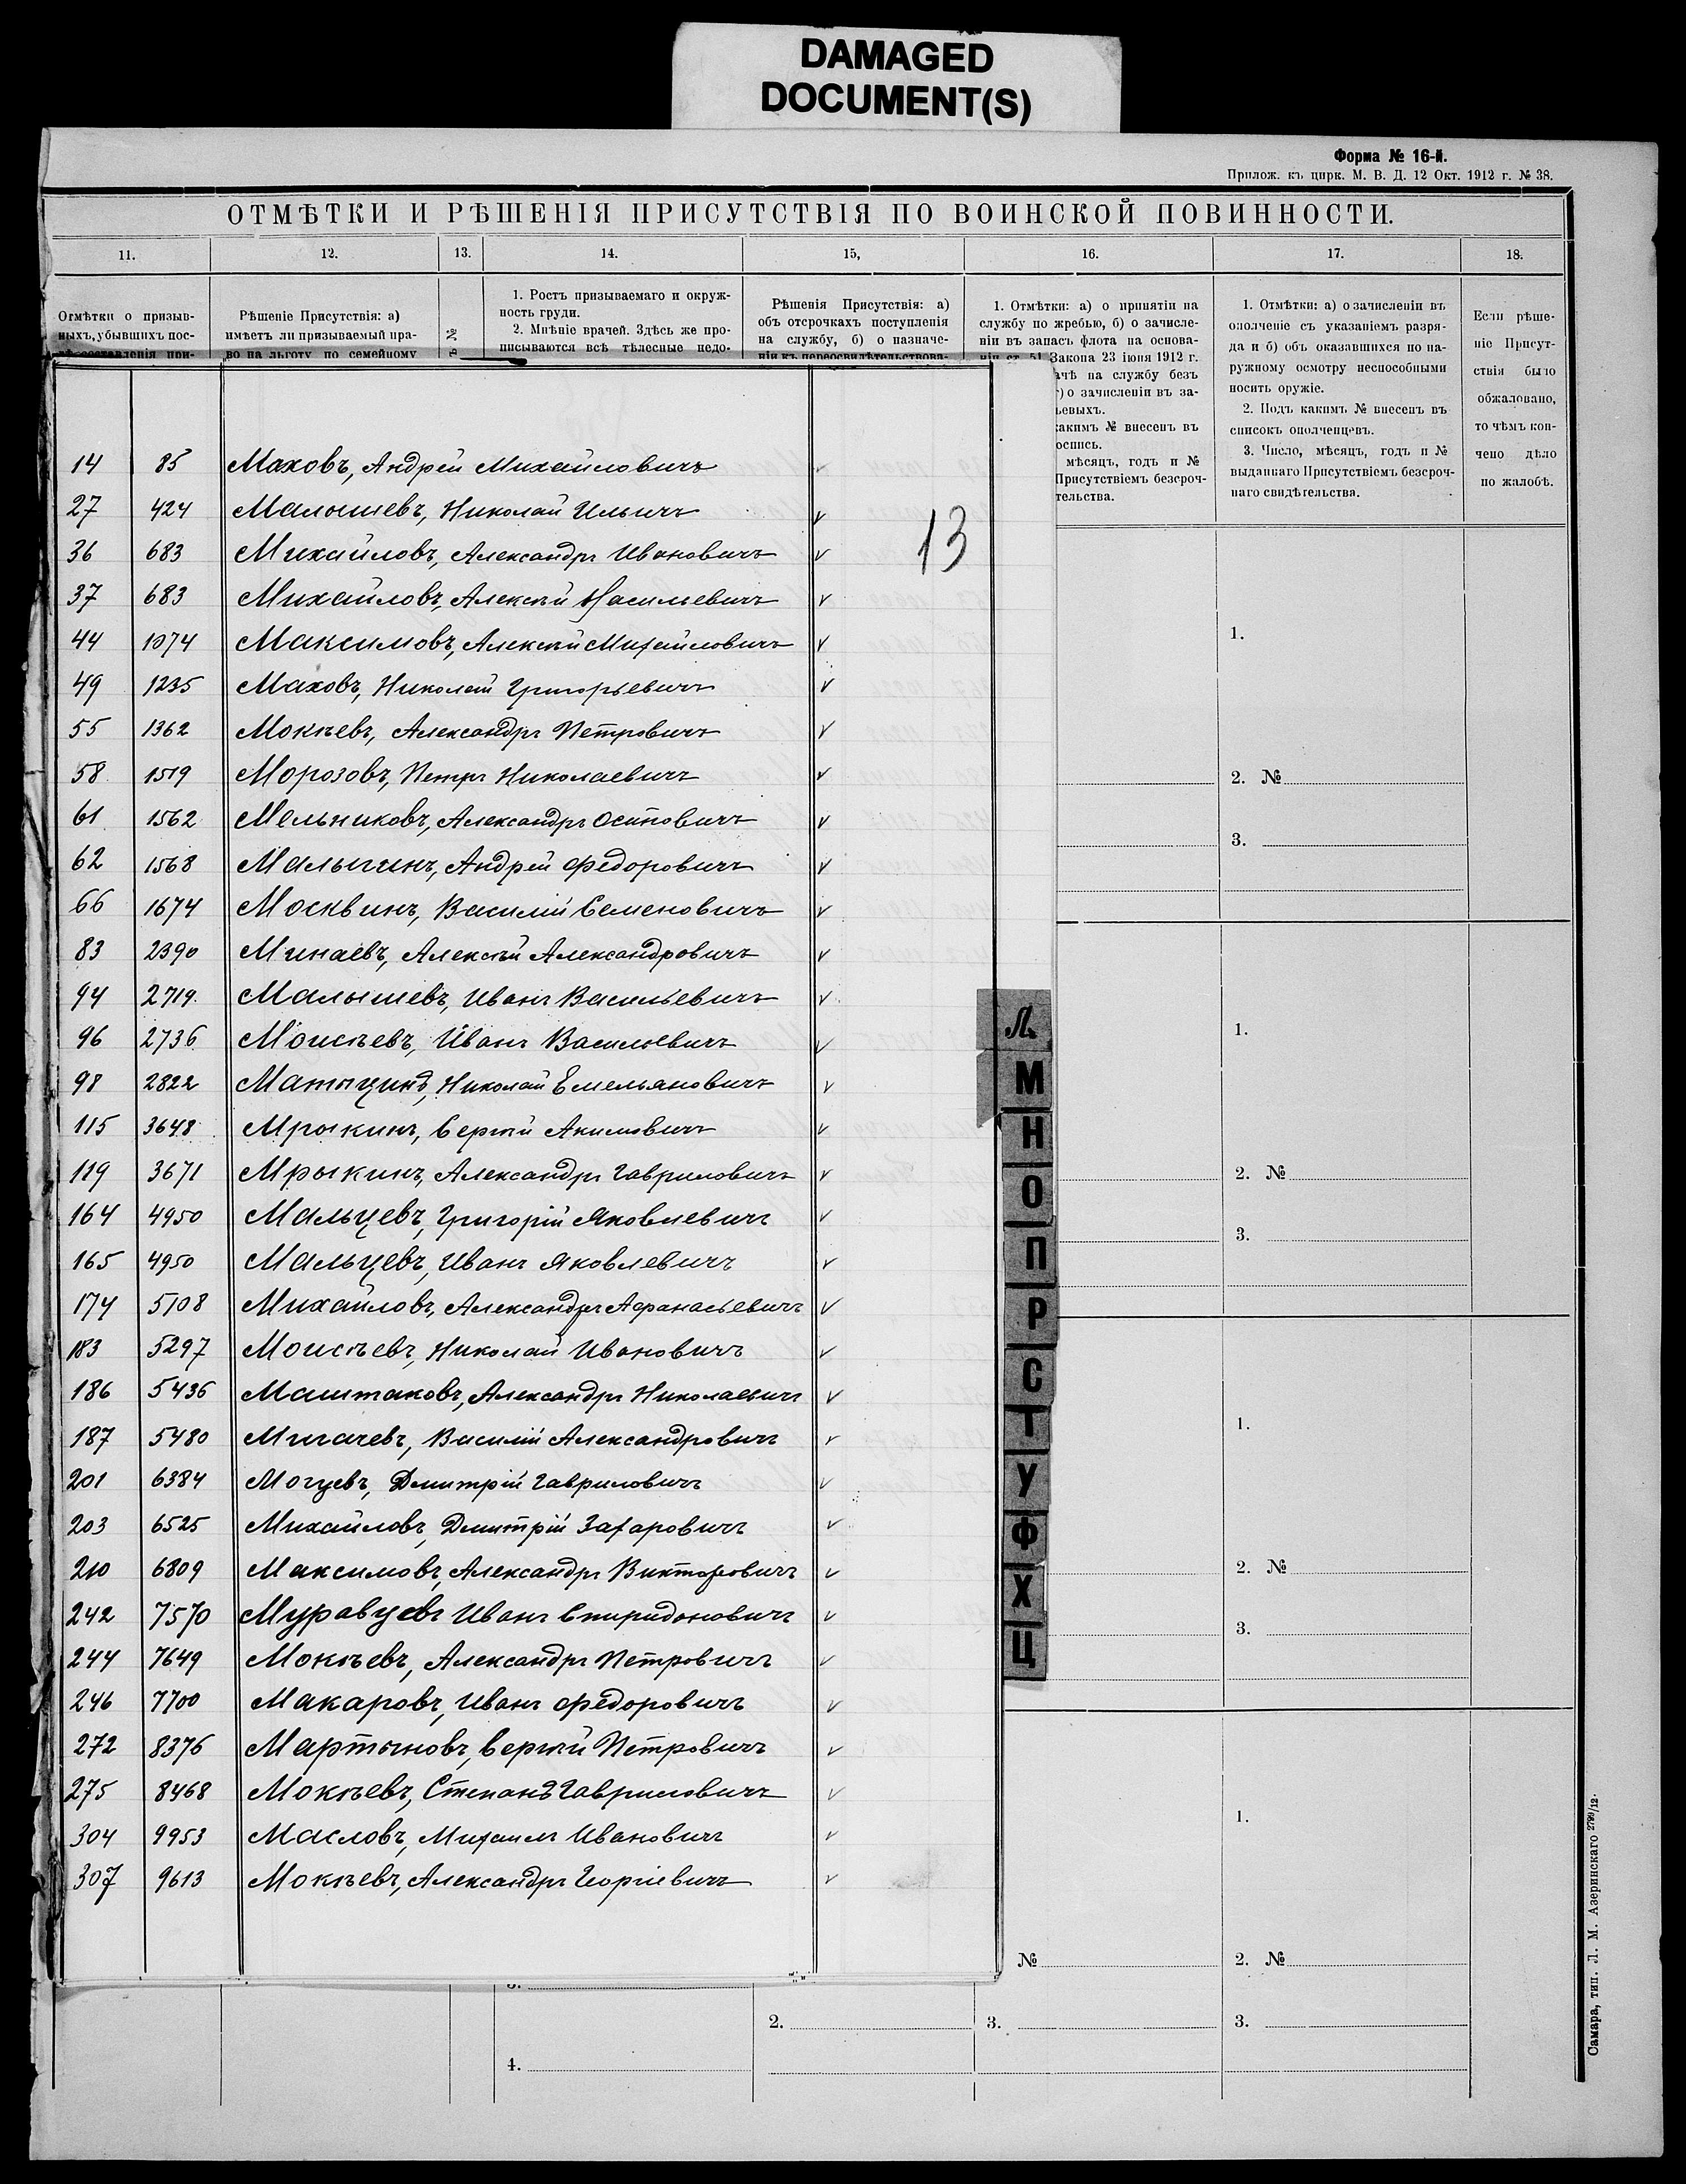 DAMAGED
DOCUMENT(S)
Форма № 16-й.
Прилож. къ цирк. М. В. Д. 12 Окт. 1912 г. № 38.
ОТМѢТКИ И РѢШЕНІЯ ПРИСУТСТВІЯ ПО ВОИНСКОЙ ПОВИННОСТИ.
11. 12. 13. 14. 15, 16. 17. 18.
Отмѣтки о призыв-
ныхъ, убывшихъ пос-
лѣ составленія при-
Рѣшеніе Присутствія: а)
имѣетъ ли призываемый пра-
во на льготу по семейному
№
1. Ростъ призываемаго и окруж-
ность груди.
2. Мнѣніе врачей. Здѣсь же про-
писываются всѣ тѣлесные недо-
Рѣшенія Присутствія: а)
объ отсрочкахъ поступленія
на службу, б) о назначе-
ніи къ переосвидѣтельствова-
1. Отмѣтки: а) о принятіи на
службу по жребью, б) о зачисле-
ніи въ запасъ флота на основа-
ніи ст. 51 Закона 23 іюня 1912 г.
ачѣ на службу безъ
г) о зачисленіи въ за-
ьевыхъ.
акимъ № внесенъ въ
оспись.
мѣсяцъ, годъ и №
Присутствіемъ безсроч-
тельства.
1. Отмѣтки: а) о зачисленіи въ
ополченіе съ указаніемъ разря-
да и б) объ оказавшихся по на-
ружному осмотру неспособными
носить оружіе.
2. Подъ какимъ № внесенъ въ
списокъ ополченцевъ.
3. Число, мѣсяцъ, годъ и №
выданнаго Присутствіемъ безсроч-
наго свидѣтельства.
Если рѣше-
ніе Присут-
ствія было
обжаловано,
то чѣмъ кон-
чено дѣло
по жалобѣ.
14 85 Маховъ, Андрей Михайловичъ
27 424 Малышевъ, Николай Ильичъ
13
36 683 Михайловъ, Александръ Ивановичъ
37 683 Михайловъ, Алексѣй Васильевичъ
44 1074 Максимовъ, Алексѣй Михайловичъ
49 1235 Маховъ, Николай Григорьевичъ
55 1362 Мокѣевъ, Александръ Петровичъ
58 1519 Морозовъ, Петръ Николаевичъ
61 1562 Мельниковъ, Александръ Осиповичъ
62 1568 Малыгинъ, Андрей Федоровичъ
66 1674 Москвинъ, Василій Семеновичъ
83 2390 Минаевъ, Алексѣй Александровичъ
94 2719 Малышевъ, Иванъ Васильевичъ
96 2736 Моисѣевъ, Иванъ Васильевичъ
98 2822 Матыцинъ, Николай Емельяновичъ
115 3648 Мрыкинъ, Сергѣй Акимовичъ
119 3671 Мрыкинъ, Александръ Гавриловичъ
164 4950 Мальцевъ, Григорій Яковлевичъ
165 4950 Мальцевъ, Иванъ Яковлевичъ
174 5108 Михайловъ, Александръ Афанасьевичъ
183 5297 Моисѣевъ, Николай Ивановичъ
186 5436 Маштаковъ, Александръ Николаевичъ
187 5480 Мигачевъ, Василій Александровичъ
201 6384 Дмитрій Гавриловичъ
203 6525 Михайловъ, Дмитрій Захаровичъ
210 6809 Максимовъ, Александръ Викторовичъ
242 7570 Муравцевъ Иванъ Спиридоновичъ
244 7649 Мокѣевъ, Александръ Петровичъ
246 7700 Макаровъ, Иванъ Федоровичъ
272 8376 Мартыновъ, Сергѣй Петровичъ
275 8468 Мокѣевъ, Степанъ Гавриловичъ
304 9953 Масловъ, Михаилъ Ивановичъ
307 9613 Мокѣевъ, Александръ Георгіевичъ
Л
М
Н
О
П
Р
С
Т
У
Ф
Х
Ц
1.
2. №
3.
1.
2. №
3.
1.
2. №
3.
1.
№ 2. №
2. 3. 3.
4.
Самара, тип. Л. М. Азеринскаго 2799/12.